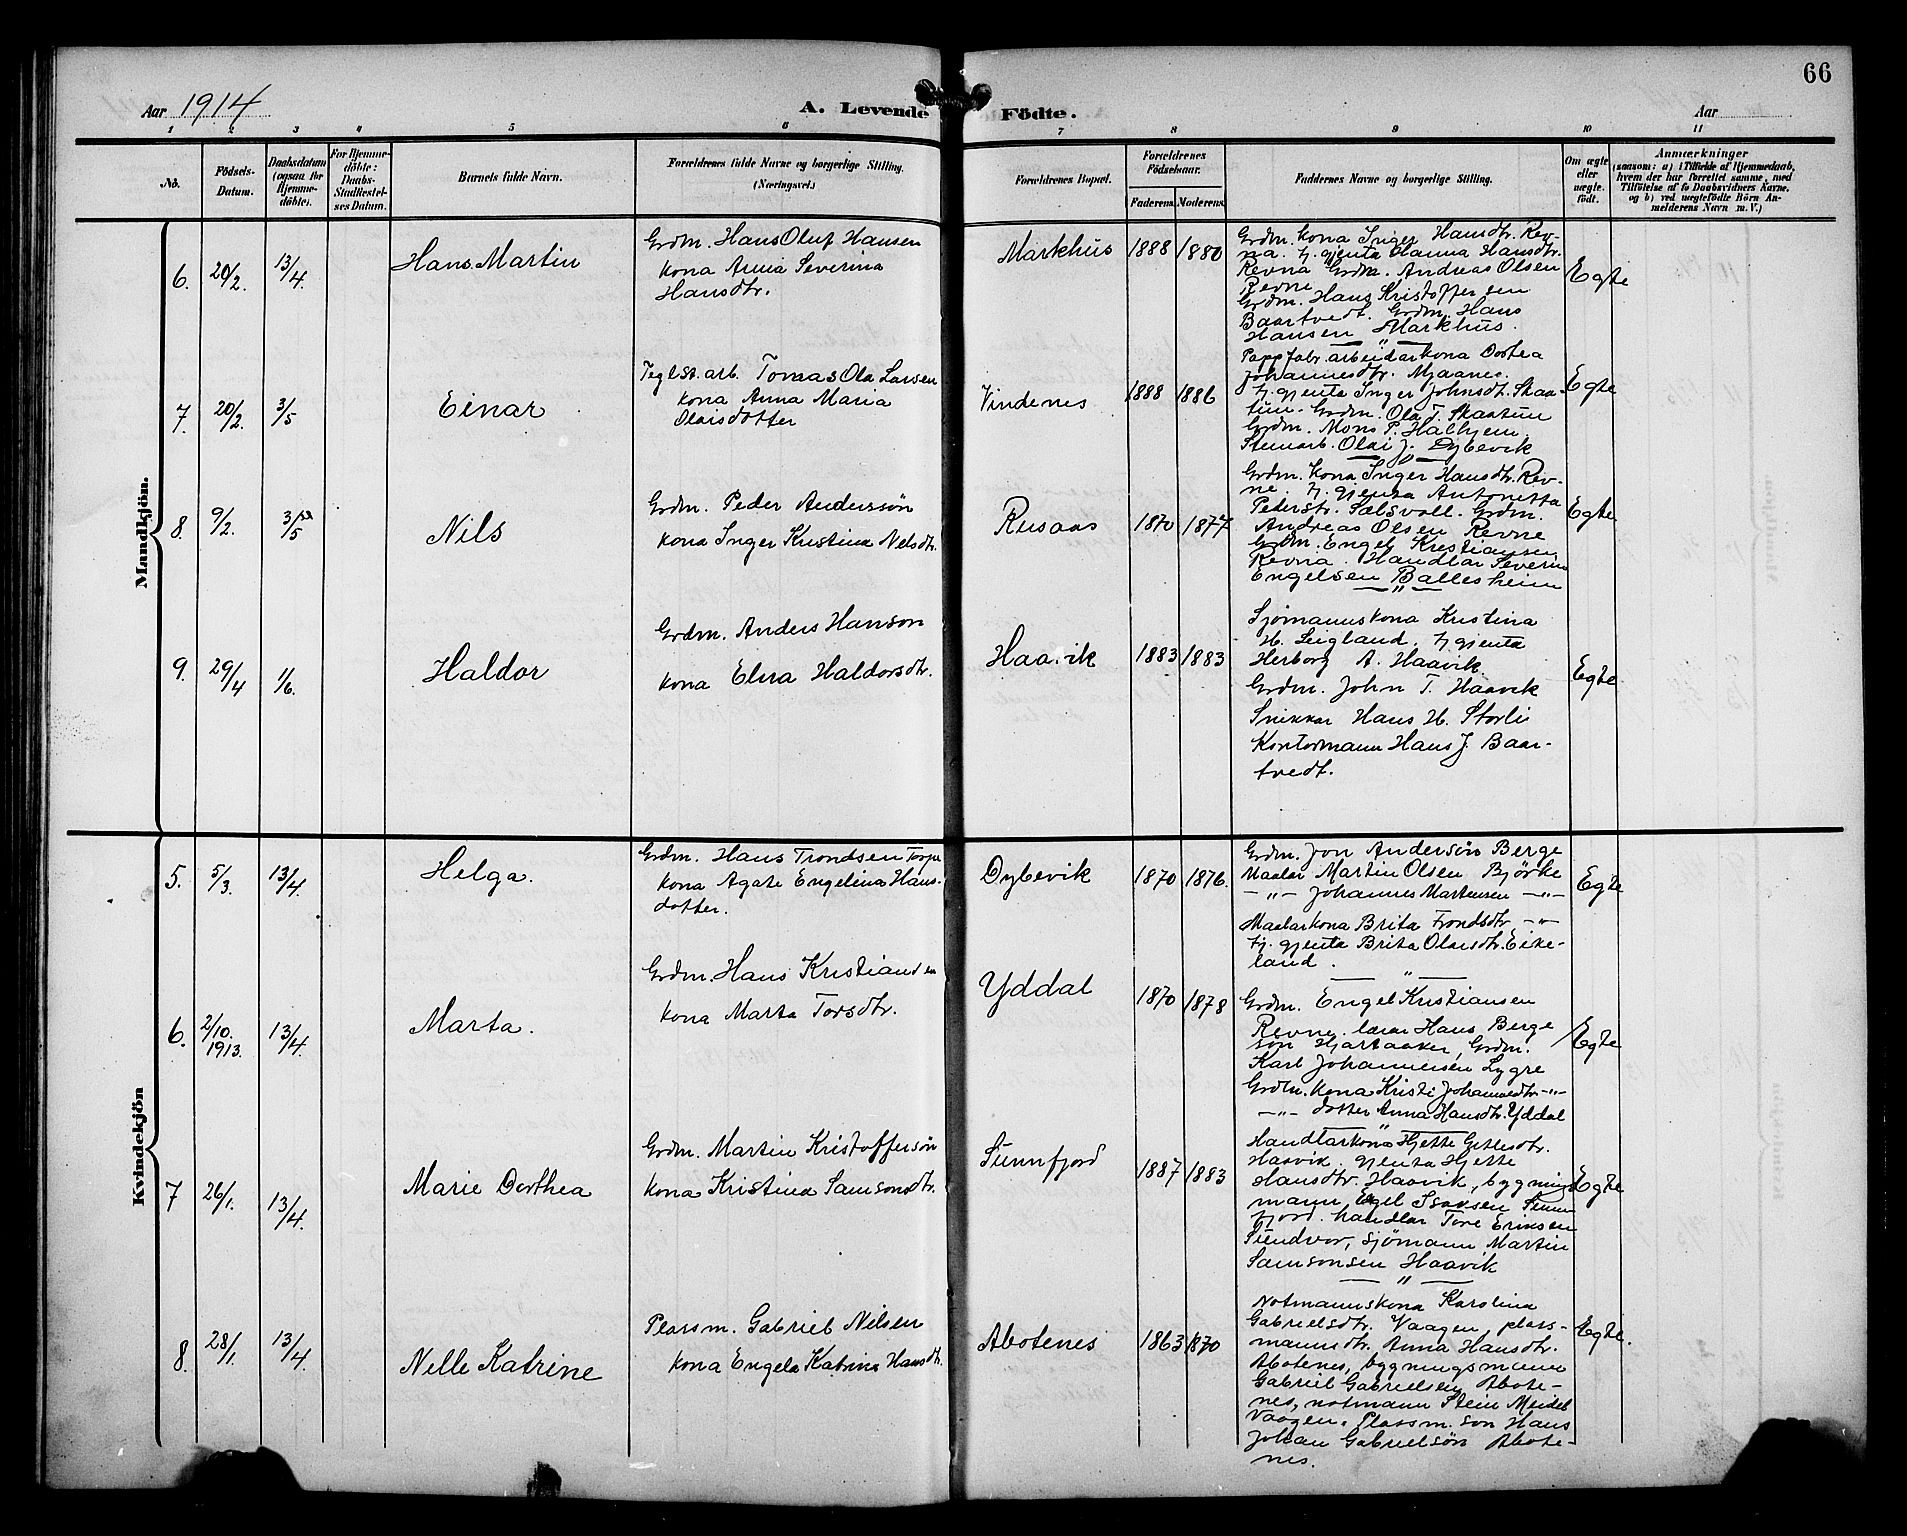 66
Aar 1914
A. Levende Födte.
Aar
1 2 3 4 5 6 7 8 9 10 11
No.
Födsels-
Datum.
Daabsdatum
(ogsaa for
Hjemme-
döbte).
For Hjemme-
döbte:
Daabs-
Stadfæstel-
ses Datum.
Barnets fulde Navn.
Forældrenes fulde Navne og borgerlige Stilling.
(Næringsvei.)
Forældrenes Bopæl.
Forældrenes
Födselsaar.
Faderens. Moderens.
Faddernes Navne og borgerlige Stilling.
Om ægte
eller
uægte.
födt.
Anmærkninger
(saasom: a) i Tilfælde af Hjemmedaab,
hvem der har forrettet samme, med
Tilföielse af to Daabsvidners Navne.
og b) ved uægtefödte Börn An-
melderens Navn m. V.)
Mandkjön.
6. 20/2. 13/4.
Hans Martin
Grdm. Hans Oluf Hansen
kona Anna Severina
Hansdtr.
Markhus 1888 1880
Grdm. kona Inger Hansdtr. Rev-
na. tj. gjenta Hanna Hansdtr.
Revna Grdm. Andreas Olsen
Revne
Grdm. Hans Kristoffersen
Baartvedt. Grdm. Hans
Hansen Markhus.
Egte
7. 20/2. 3/5
Einar
Teglst. arb. Tomas Ola Larsen
kona Anna Maria
Olaisdotter
Vindenes 1888 1886
Pappfabr. arbeidarkona Dortea
Johannesdtr. Mjaanes.
tj. gjenta Inger Johnsdt. Skaa-
tun. Grdm. Ola T. Skaatun
Grdm. Mons P. Halhjem
Stenarb. Olai J. Dybevik
Egte
8. 9/2. 3/5
Nils
Grdm. Peder Andersön
kona Inger Kristina Nelsdtr.
Rusaas 1870 1877
Grdm. kona Inger Hansdtr. Rev-
ne. tj. gjenta Antonetta
Peterstr. Sælsvoll. Grdm.
Andreas Olsen Revne
Grdm. Engel Kristiansen
Revna. Handlar Severin
Engelsen Ballesheim
Egte
9. 29/4 1/6.
Haldor
Grdm. Anders Hanson
kona Elna Haldorsdtr.
Haavik 1883 1883
Sjömannskona Kristina
H. Leigland, tj gjenta
Herborg A. Haavik.
Grdm. John T. Haavik
Snikkar Hans H. Storli
Kontormann Hans J. Baar-
tvedt.
Egte
Kvindekjön
5. 5/3. 13/4.
Helga.
Grdm. Hans Trondsen
kona Agate Engelina Hans-
dotter.
Dybevik 1870 1876.
Grdm. Jon Andersön Berge
Maalar Martin Olsen Björke
-"- Johannes Martensen -"-
Maalarkona Brita Trondsdtr -"-
tj. gjenta Brita Olaisdtr. Eike-
land.
Egte
6. 2/10. 1913. 13/4.
Marta.
Grdm. Hans Kristiansen
kona Marta Torsdtr.
Yddal 1870 1878
Grdm. Engel Kristiansen
Revne. lærar Hans Berge
sön Hjartaaker, Grdm.
Karl Johannessen Lygre
Grdm. kona Kristi Johannesdtr -"-
-"- dotter Anna Hansdtr. Yddal
Egte
7 26/1. 13/4.
Marie Dorthea
Grdm. Martin Kristoffersön
kona Kristina Samsonsdtr.
Sunnfjord 1887 1883
Handlarkona Hjette Gitlesdtr.
Haavik, gjenta Hjette
Hansdtr. Haavik, bygnings
mann Engel Isaksen Sunn-
fjord. handlar Tore Eriksen
Sundvor, sjömann Martin
Samsonsen Haavik
Egte
8. 28/1. 13/4.
Nelle Katrine
Plassm. Gabriel Nilsen
kona Engela Katrina Hansdtr.
Abotenes 1863 1870
Notmannskona Karolina
Gabrielsdtr. Vaagen, plass-
manndtr. Anna Hansdtr.
Abotenes, bygningsmann
Gabriel Gabrielsen Abote-
nes, notmann Stein Meidel
Vaagen. Plassm. son Hans
Johan Gabrielsön Abote-
nes.
Egte.